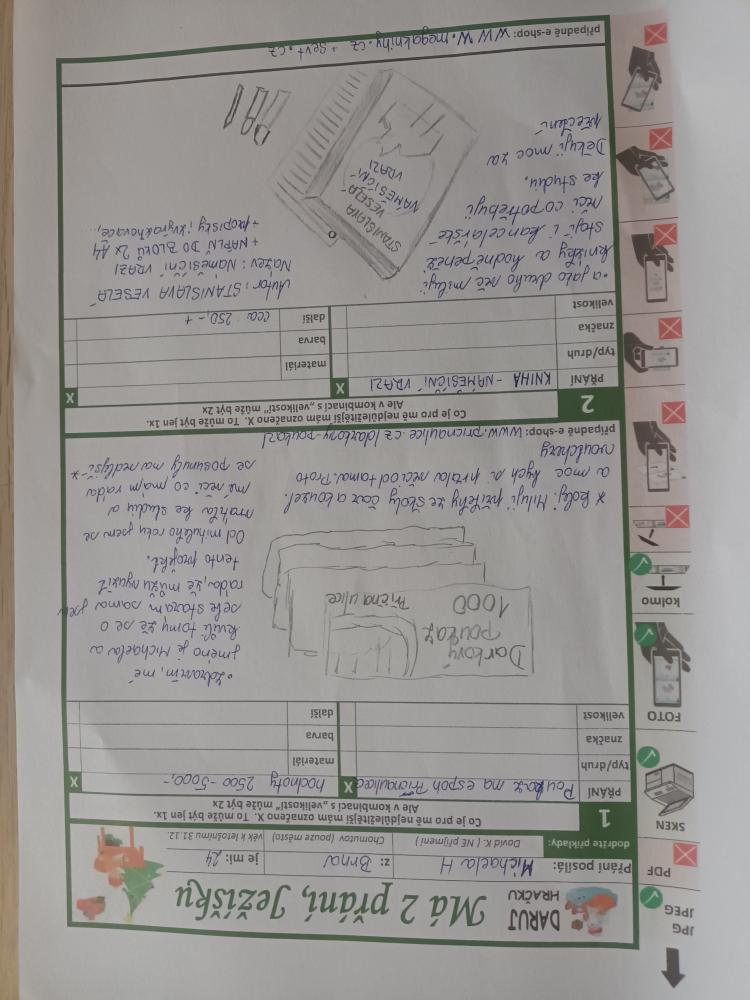 JPG
JPEG
PDF
SKEN
FOTO
kolmo
DARUJ
HRAČKU
Má 2 přání, Ježíšku
Přání posílá: Michaela H z: Brna je: mi: 24
dodržte příklady: David K. ( NE příjmení ) Chomutov (pouze město) věk k letošnímu 31.12.
1
Co je pro mě nejdůležitější mám označeno X. To může být jen 1x.
Ale v kombinaci s „velikostí“ může být 2x
PŘÁNÍ Poukaz na espoh Příčnaulice X hodnoty 2500 - 5000,- X
typ/druh materiál
značka barva
velikost další
Darkový
poukaz
1000
Příčna ulice
• Zdravím, mé
jméno je Michaela a
kvůli tomu že se o
sebe starám sama jsem
ráda, že můžu využít
tento projekt.
Od minulého roku jsem se
vrátila ke studiu a
mé věci co mám ráda
se posunuly na nedlyší *
* kolej. Miluji příběhy ze školy čar a kouzel
a moc bych si přála něci od tama. Proto
voutchery
případně e-shop: www.pricnaulice.cz /darkony-poukaz/
2
Co je pro mě nejdůležitější mám označeno X. To může být jen 1x.
Ale v kombinaci s „velikostí“ může být 2x
PŘÁNÍ KNIHA - NÁMĚSÍČNÍ VRAZI X X
typ/druh materiál
značka barva
velikost další cca 250,- +
• a jako druhou věc miluji
knížky a hodně peněz
stojí i kancelářské
věci co potřebuji
ke studiu.
Děkuji moc za
přečtení
Autor: STANISLAVA VESELÁ
Název: Náměsíční VRAZI
+ NÁPLŇ DO BLOKŮ 2x A4
+ propisky, zvýrazňovače,..
STANISLAVA
VESELÁ
NÁMĚSÍČNÍ
VRAZI
případně e-shop: WWW.megaknihy.cz + sevt.cz